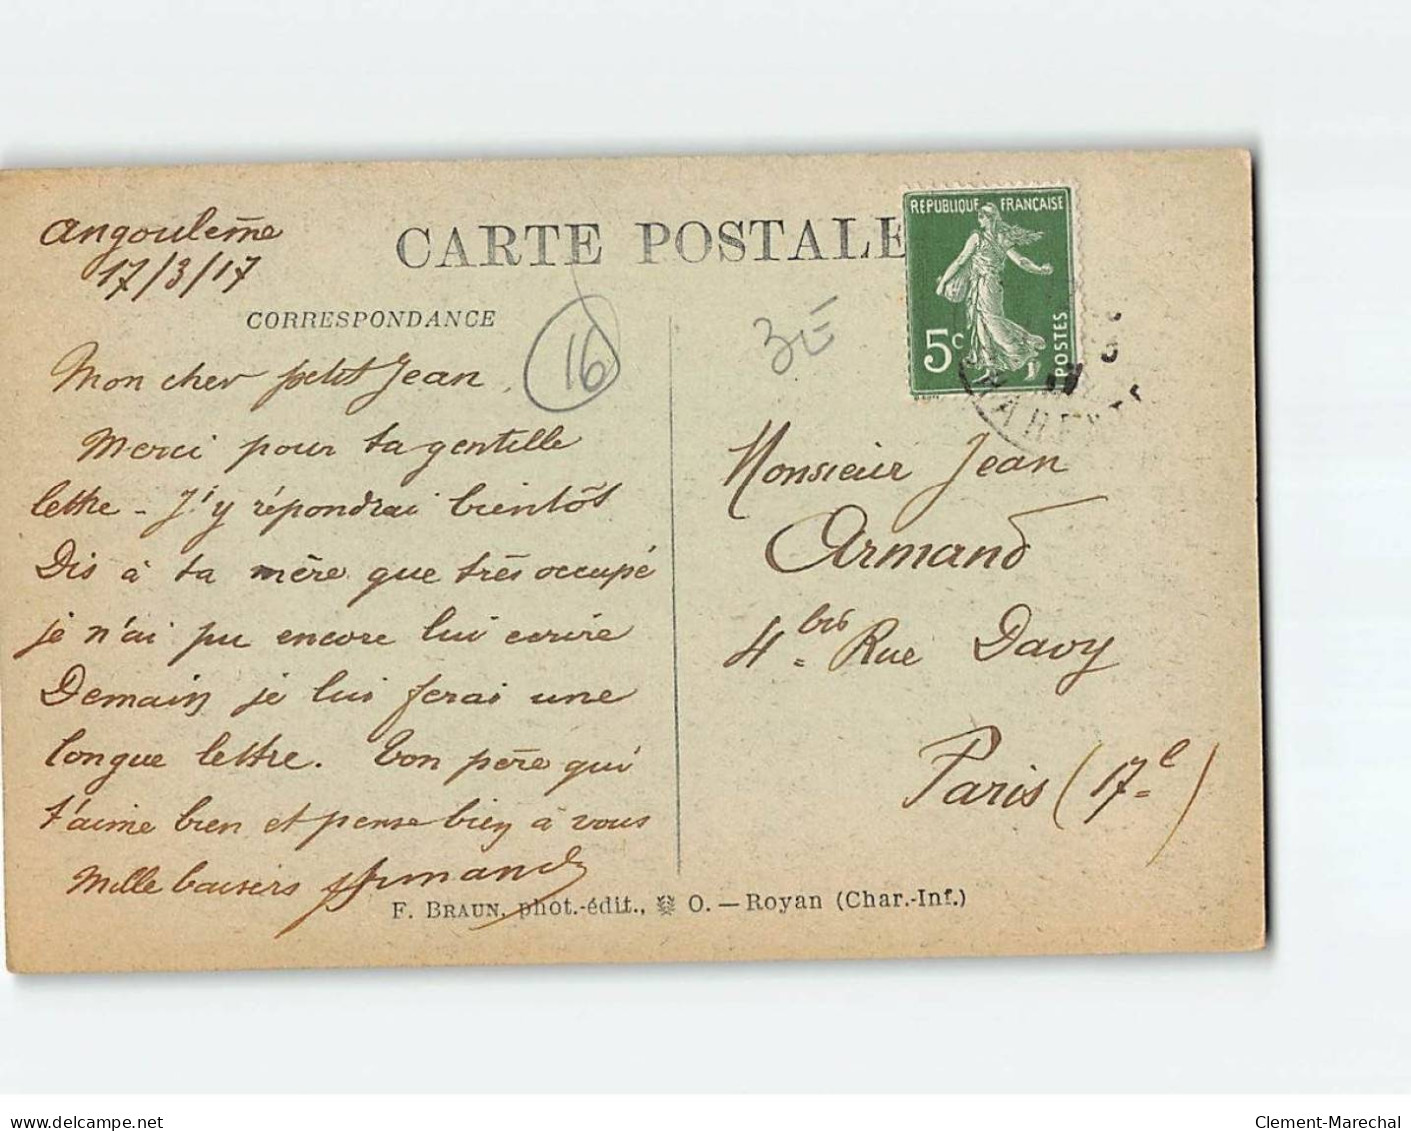 Angoulême
17/3/17
CARTE POSTALE
CORRESPONDANCE
Mon cher petit Jean
Merci pour ta gentille
lettre - J'y répondrai bientôt
Dis à ta mère que très occupé
je n'ai pu encore lui ecrire
Demain je lui ferai une
longue lettre. Ton père qui
t'aime bien et pense bien a vous
Mille baisers Armand
16
3E
REPUBLIQUE FRANÇAISE
5c
POSTES
Monsieur Jean
Armand
4 bis Rue Davy
Paris (17e)
F. BRAUN, phot.-édit., O. — Royan (Char.-Inf.)
delcampe.net
Clement-Marechal